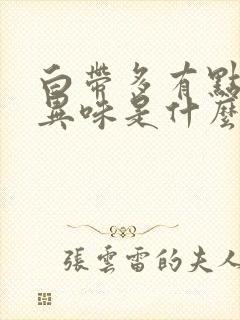 白帶多有點
異味是什麼
張雲雷的夫人